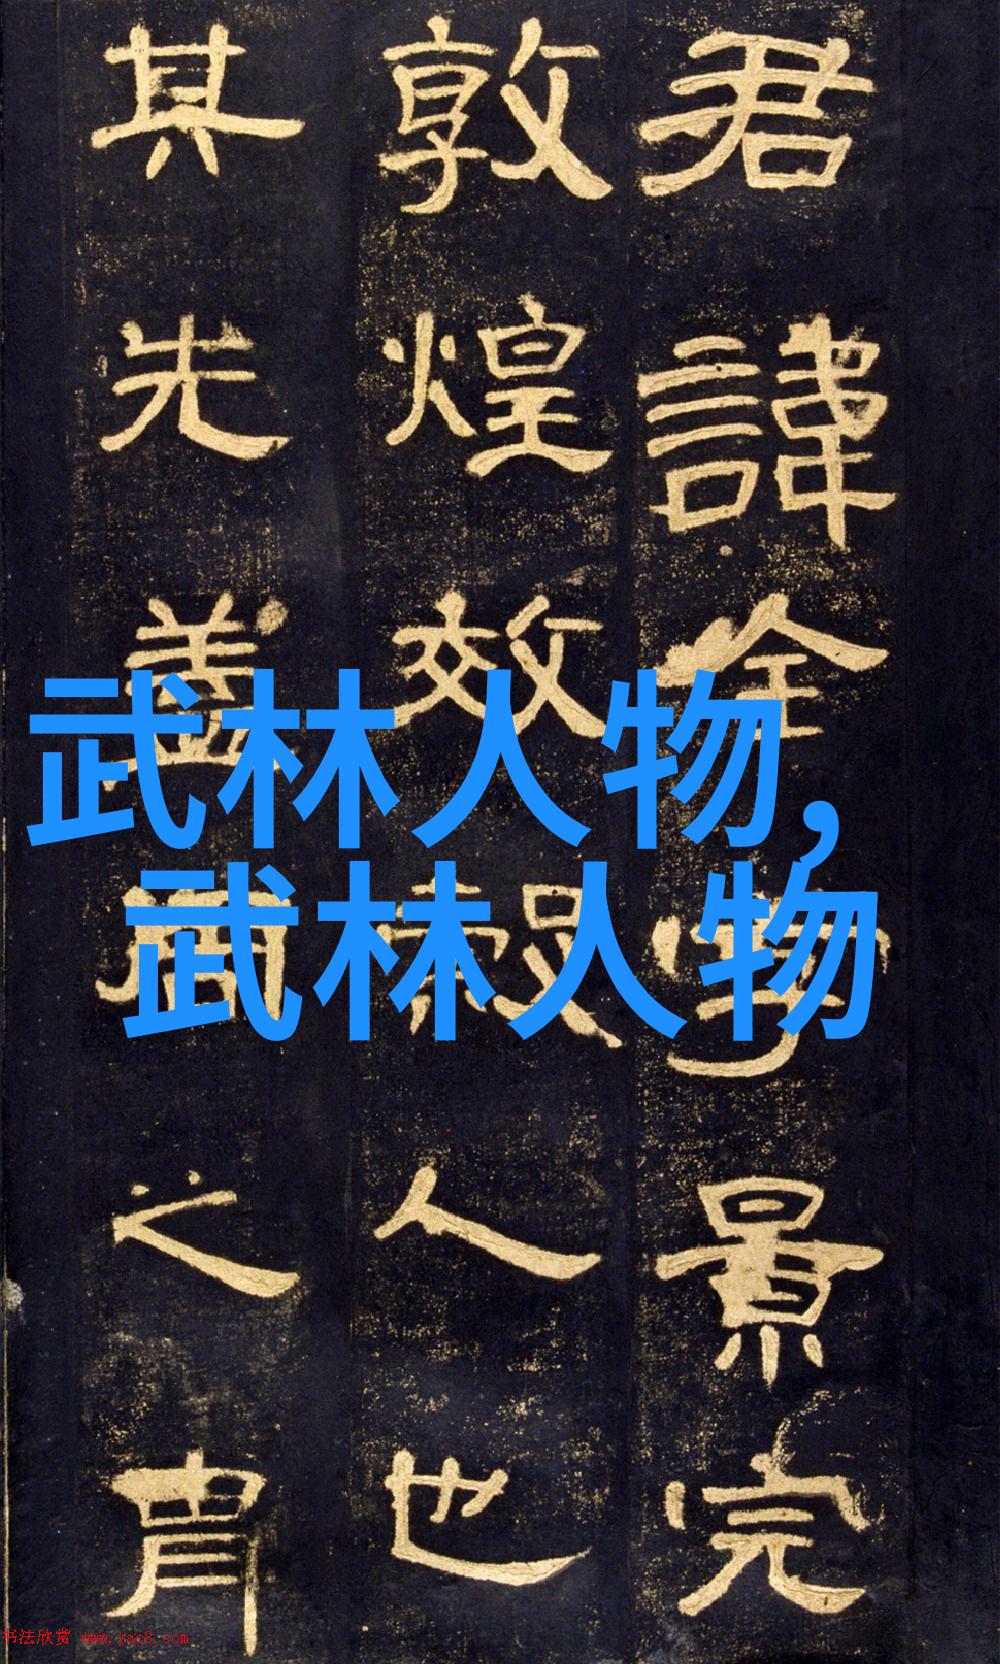 君諱全字景完
敦煌效穀人也
其先蓋周之胄
武林人物,
武林人物
书法欣赏 www.yac8.com